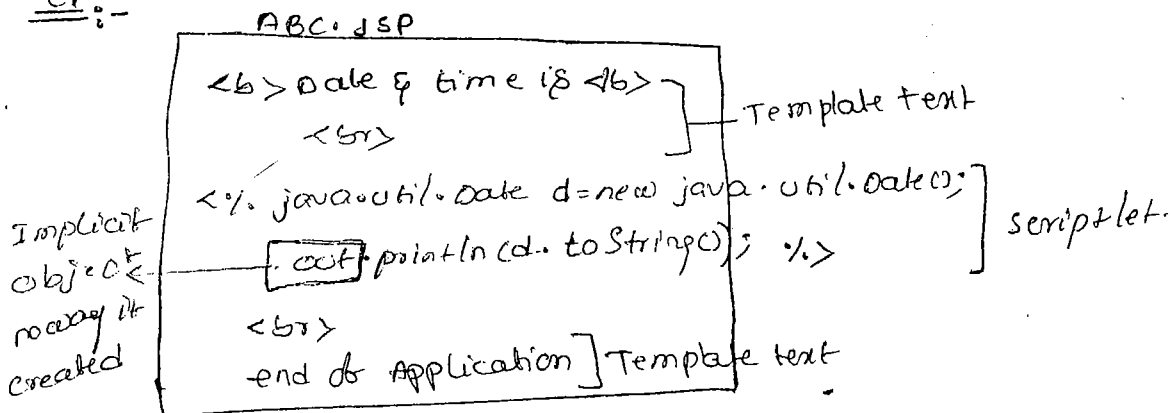 Ex :-
ABC.JSP
<b> Date & time is </b>
<br>
Template text
<% java.util.Date d=new java.util.Date();
out.println(d.toString()); %>
scriptlet.
Implicit
object
it
created
<br>
end of Application
Template text